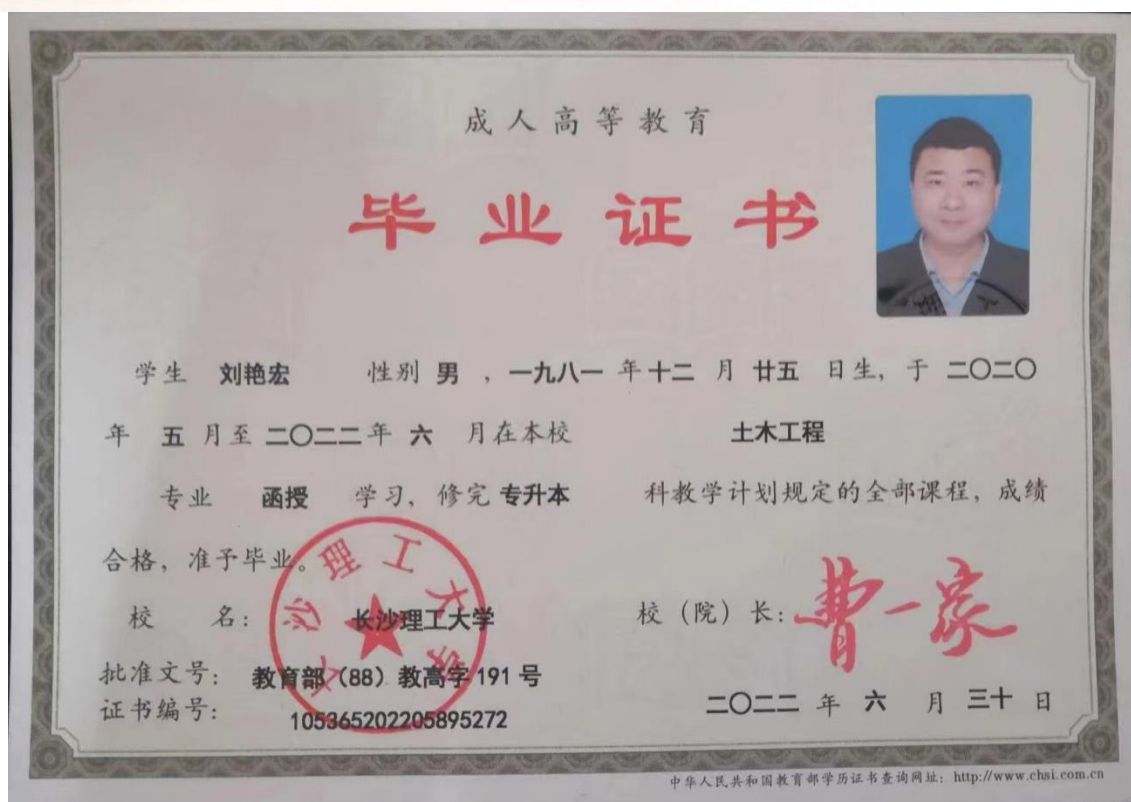 成人高等教育
毕业证书
学生 刘艳宏 性别 男 ，一九八一 年 十二 月 廿五 日生，于 二〇二〇
年 五 月至 二〇二二 年 六 月在本校 土木工程
专业 函授 学习，修完 专升本 科教学计划规定的全部课程，成绩
合格，准予毕业。
校 名： 长沙理工大学
校（院）长：曹一家
批准文号： 教育部（88）教高字 191 号
证书编号： 105365202205895272
二〇二二 年 六 月 三十 日
沙理工大学
中华人民共和国教育部学历证书查询网址：http://www.chsi.com.cn